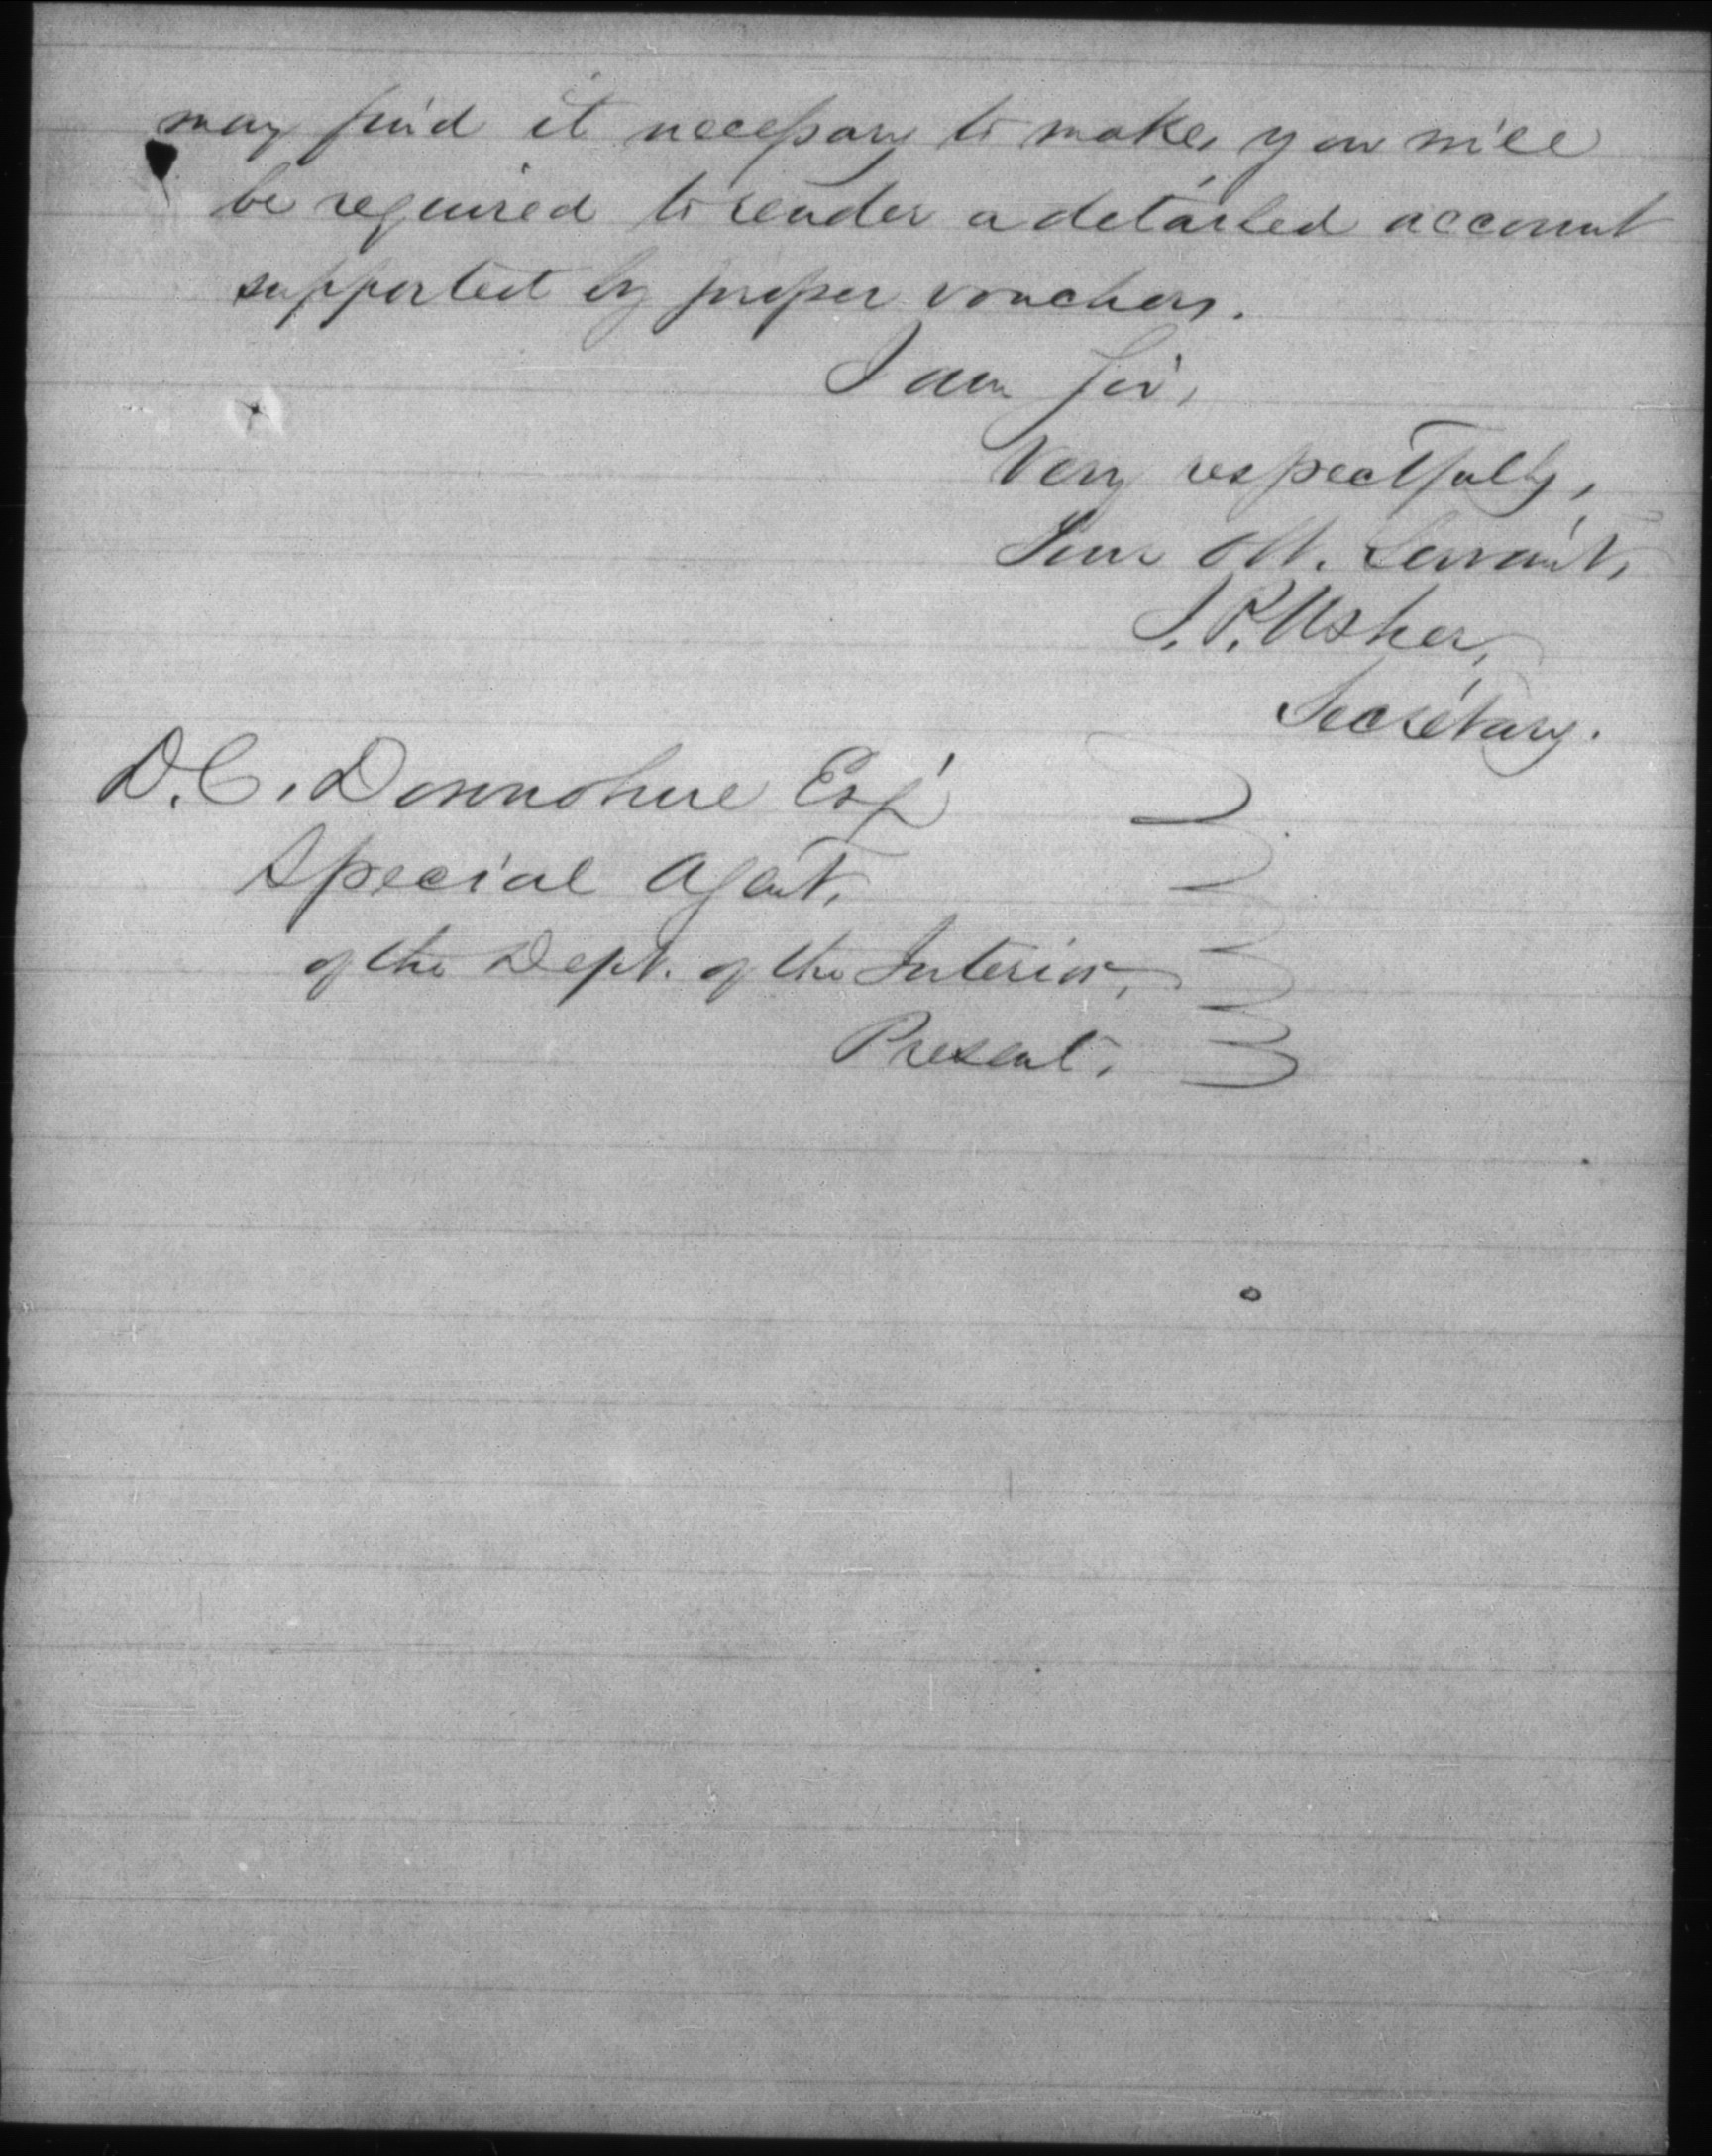 may find it necessary to make, you will
be required to render a detailed account
supported by proper vouchers.
I am Sir,
Very respectfully,
Your Obt. Servant,
J. P. Usher,
Secretary.
D. C. Donnohue Esq
Special Agent,
of the Dept. of the Interior,
Present.